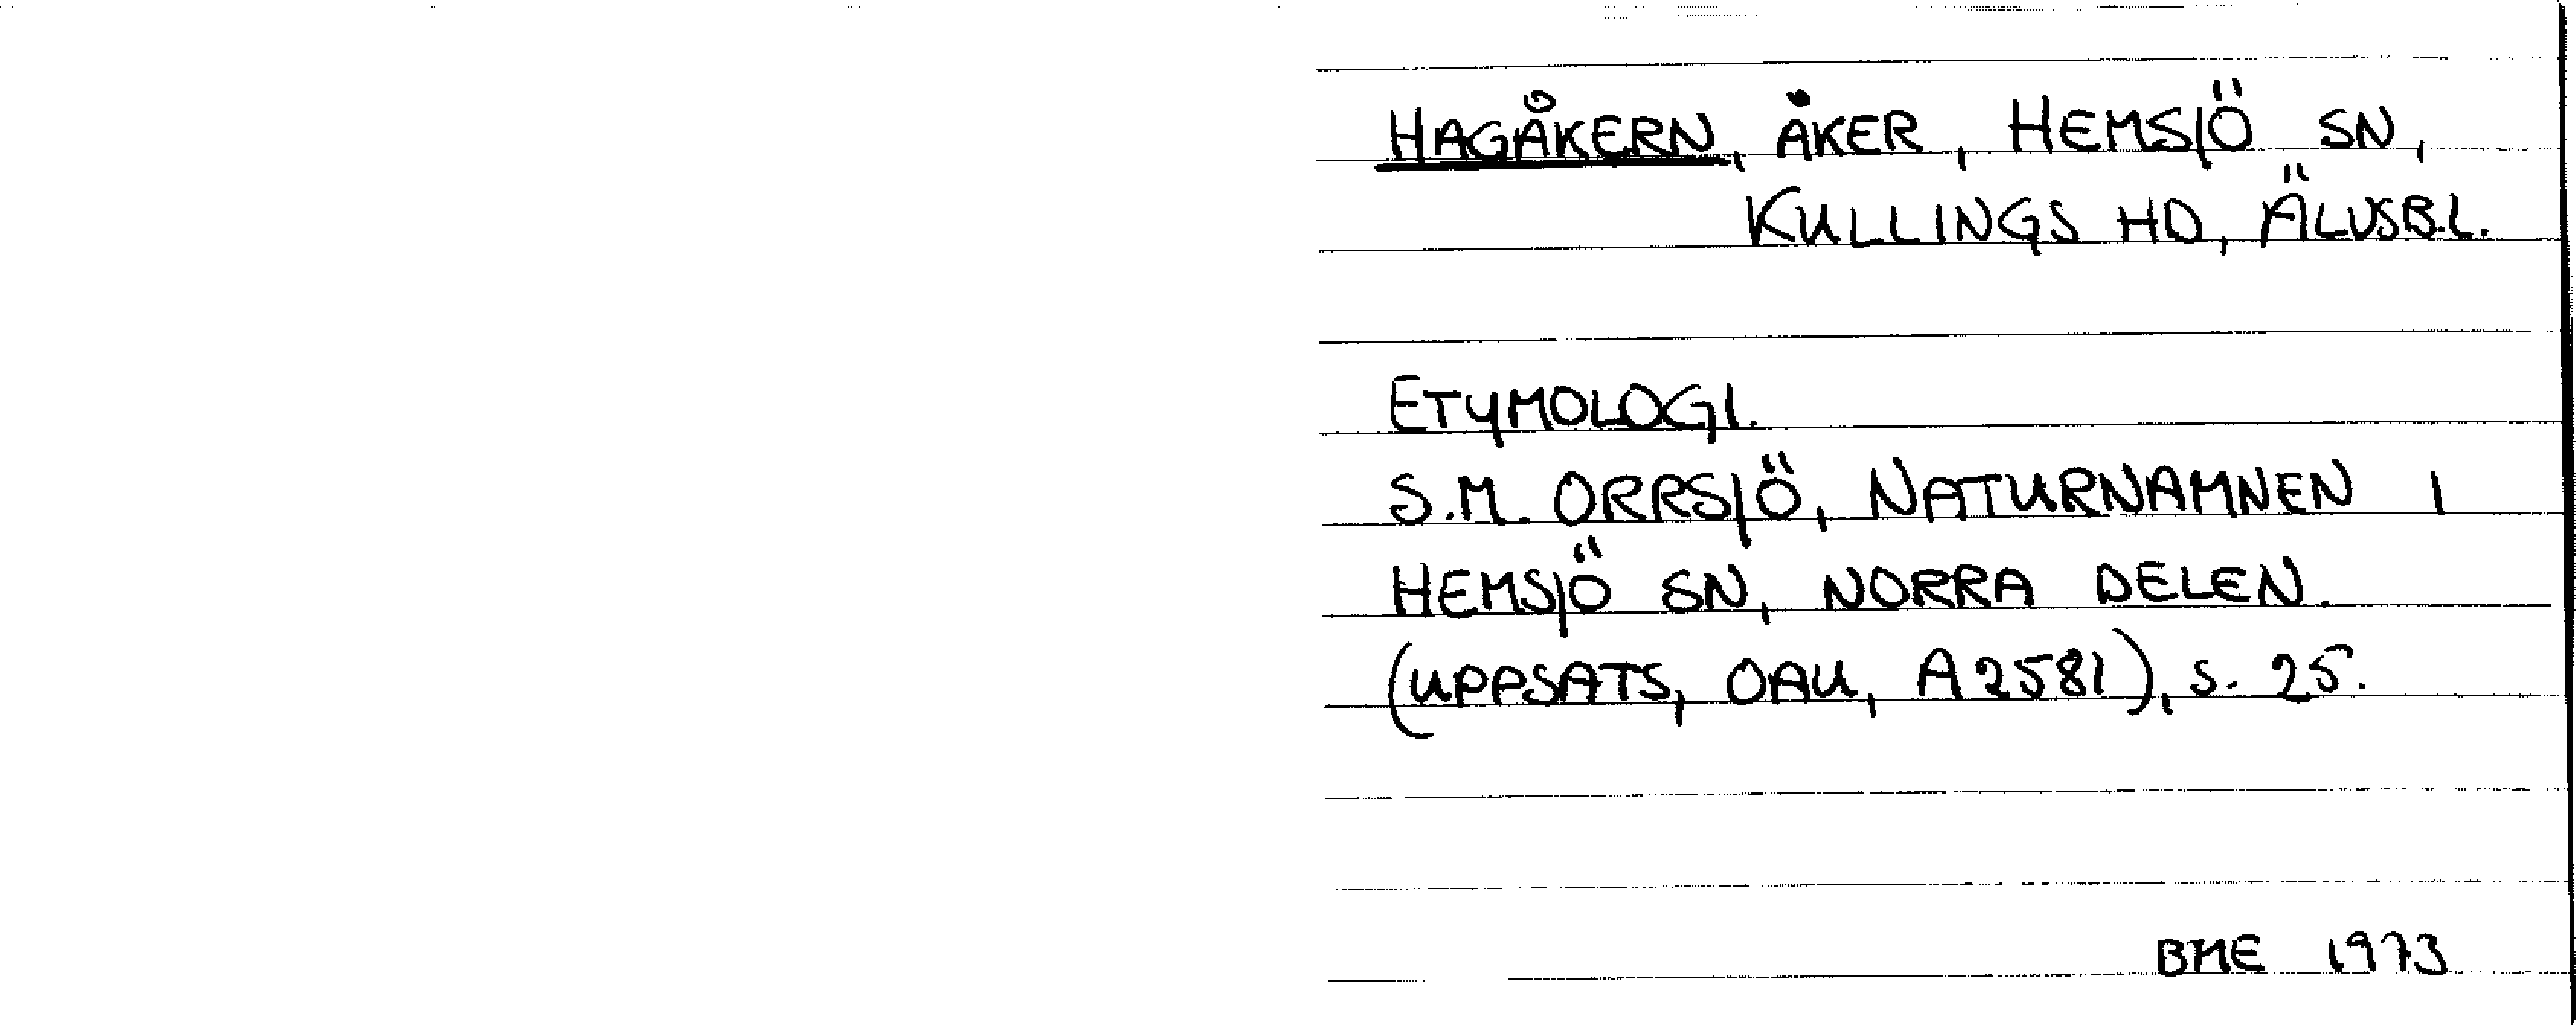 HAGÅKERN, ÅKER, HEMSJÖ SN,
KULLINGS HD, ÄLVSB.L.
ETYMOLOGI.
S.M. ORRSJÖ, NATURNAMNEN I
HEMSJÖ SN, NORRA DELEN.
(UPPSATS, OAU, A2581), S. 25.
BME 1973